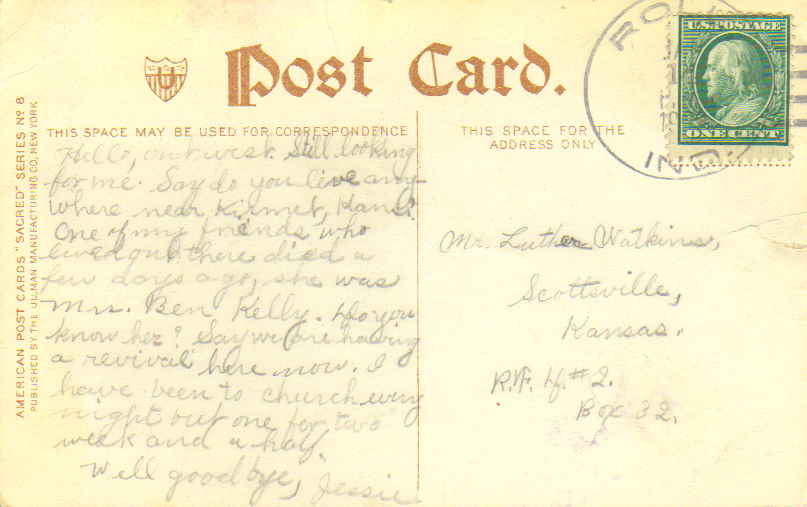 Post Card.
THIS SPACE MAY BE USED FOR CORRESPONDENCE
THIS SPACE FOR THE
ADDRESS ONLY
AMERICAN POST CARDS "SACRED" SERIES Nº 8
PUBLISHED BY THE ULLMAN MANUFACTURING CO, NEW YORK
U
U.S. POSTAGE
ONE CENT
IND
Hello, out west. Still looking
for me. Say do you live any-
where near Kans.
One of my friends who
lived out there died a
few days ago, she was
Mrs. Ben Kelly. Do you
know her? Say we are having
a revival here now. I
have been to church every
night but one for two
week and a half.
Well goodbye, Jessie
Mr. Luther Watkins,
Scottsville,
Kansas.
R.F. #2.
Box 32.